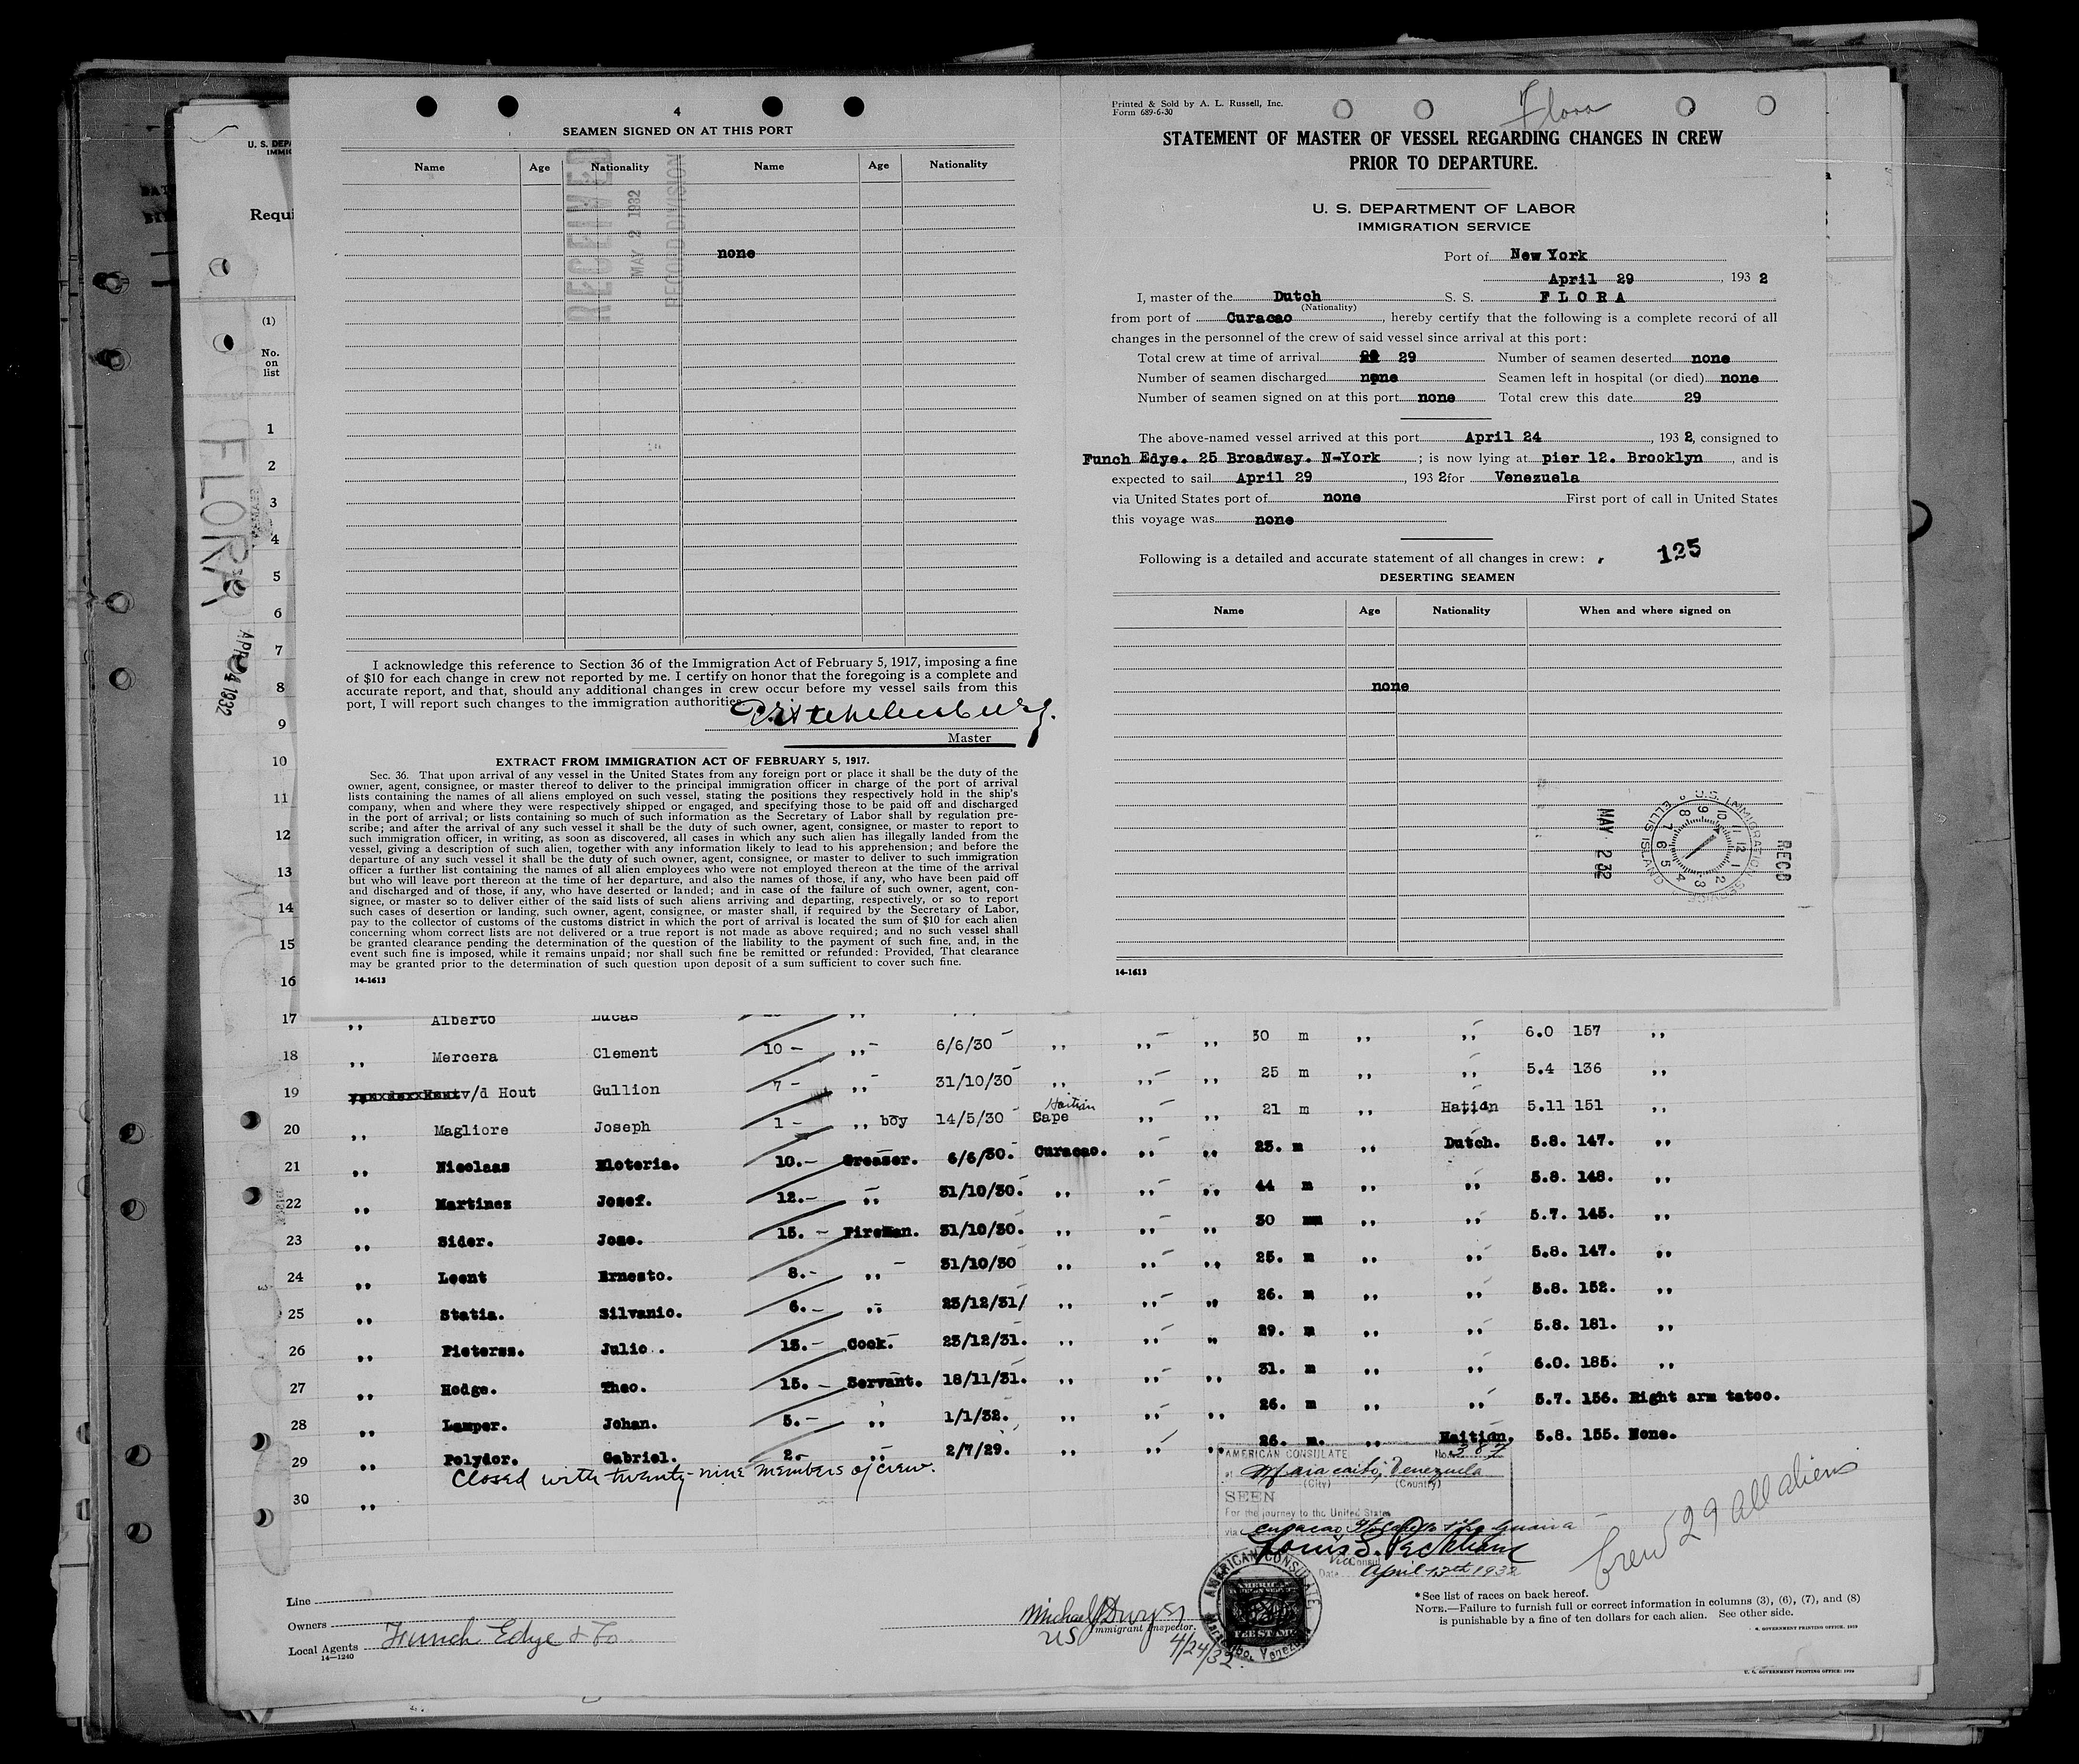 4
SEAMEN SIGNED ON AT THIS PORT
Name Age Nationality Name Age Nationality
RECEIVED
MAY 2 1932
RECORD DIVISION
none
I acknowledge this reference to Section 36 of the Immigration Act of February 5, 1917, imposing a fine
of $10 for each change in crew not reported by me. I certify on honor that the foregoing is a complete and
accurate report, and that, should any additional changes in crew occur before my vessel sails from this
port, I will report such changes to the immigration authorities.
Master
EXTRACT FROM IMMIGRATION ACT OF FEBRUARY 5, 1917.
Sec. 36. That upon arrival of any vessel in the United States from any foreign port or place it shall be the duty of the
owner, agent, consignee, or master thereof to deliver to the principal immigration officer in charge of the port of arrival
lists containing the names of all aliens employed on such vessel, stating the positions they respectively hold in the ship's
company, when and where they were respectively shipped or engaged, and specifying those to be paid off and discharged
in the port of arrival; or lists containing so much of such information as the Secretary of Labor shall by regulation pre-
scribe; and after the arrival of any such vessel it shall be the duty of such owner, agent, consignee, or master to report to
such immigration officer, in writing, as soon as discovered, all cases in which any such alien has illegally landed from the
vessel, giving a description of such alien, together with any information likely to lead to his apprehension; and before the
departure of any such vessel it shall be the duty of such owner, agent, consignee, or master to deliver to such immigration
officer a further list containing the names of all alien employees who were not employed thereon at the time of the arrival
but who will leave port thereon at the time of her departure, and also the names of those, if any, who have been paid off
and discharged and of those, if any, who have deserted or landed; and in case of the failure of such owner, agent, con-
signee, or master so to deliver either of the said lists of such aliens arriving and departing, respectively, or so to report
such cases of desertion or landing, such owner, agent, consignee, or master shall, if required by the Secretary of Labor,
pay to the collector of customs of the customs district in which the port of arrival is located the sum of $10 for each alien
concerning whom correct lists are not delivered or a true report is not made as above required; and no such vessel shall
be granted clearance pending the determination of the question of the liability to the payment of such fine, and, in the
event such fine is imposed, while it remains unpaid; nor shall such fine be remitted or refunded: Provided, That clearance
may be granted prior to the determination of such question upon deposit of a sum sufficient to cover such fine.
14-1613
Printed & Sold by A. L. Russell, Inc.
Form 689-6-30
Flora
STATEMENT OF MASTER OF VESSEL REGARDING CHANGES IN CREW
PRIOR TO DEPARTURE.
U. S. DEPARTMENT OF LABOR
IMMIGRATION SERVICE
Port of New York
April 29, 193 2
I, master of the Dutch S. S. FLORA
(Nationality)
from port of Curacao, hereby certify that the following is a complete record of all
changes in the personnel of the crew of said vessel since arrival at this port:
Total crew at time of arrival 29 Number of seamen deserted none
Number of seamen discharged none Seamen left in hospital (or died) none
Number of seamen signed on at this port none Total crew this date 29
The above-named vessel arrived at this port April 24, 193 2, consigned to
Funch Edye. 25 Broadway. N-York ; is now lying at pier 12. Brooklyn, and is
expected to sail April 29, 193 2 for Venezuela
via United States port of none First port of call in United States
this voyage was none
Following is a detailed and accurate statement of all changes in crew: 125
DESERTING SEAMEN
Name Age Nationality When and where signed on
none
MAY 2 32
U.S. IMMIGRATION SERVICE ELLIS ISLAND
REC'D
14-1613
U. S. DEPA
IMMIG
Requi
(1)
No.
on
list
FLORA
APR 24 1932
1
2
3
4
5
6
7
8
9
10
11
12
13
14
15
16
17 ,, Alberto Lucas
18 ,, Mercera Clement 10 - ,,- 6/6/30 ,, ,, ,, 30 m ,, ,, 6.0 157 ,,
19 v/d Hout Gullion 7 - ,,- 31/10/30 ,, ,, ,, 25 m ,, ,, 5.4 136 ,,
20 ,, Magliore Joseph 1 - ,, boy 14/5/30 Haitian Cape ,, ,, 21 m ,, Hatian 5.11 151 ,,
21 ,, Nicolaas Eloteria. 10.- Greaser. 6/6/30. Curacao. ,, ,, 23. m ,, Dutch. 5.8. 147. ,,
22 ,, Martinez Josef. 12.- ,, 31/10/30. ,, ,, ,, 44 m ,, ,, 5.8. 148. ,,
23 ,, Sider. Jose. 15. - Fireman. 31/10/30. ,, ,, ,, 30 m ,, ,, 5.7. 145. ,,
24 ,, Leent Ernesto. 8.- ,, 31/10/30 ,, ,, ,, 25. m ,, ,, 5.8. 147. ,,
25 ,, Statia. Silvanio. 6.- ,, 23/12/31/ ,, ,, ,, 26. m ,, ,, 5.8. 152. ,,
26 ,, Pieterss. Julio. 13.- Cook. 23/12/31. ,, ,, ,, 29. m ,, ,, 5.8. 181. ,,
27 ,, Hodge. Theo. 15. - Servant. 18/11/31. ,, ,, ,, 31. m ,, ,, 6.0. 185. ,,
28 ,, Lamper. Johan. 5.- ,, 1/1/32. ,, ,, ,, 26. m ,, ,, 5.7. 156. Right arm tatoo.
29 ,, Polydor. Gabriel. 2.- ,, 2/7/29. ,, ,, ,, 26. m. ,, Haitian. 5.8. 155. None.
Closed with twenty-nine members of crew.
30 ,,
AMERICAN CONSULATE No. 387
at Maracaibo, Venezuela
(City) (Country)
SEEN
For the journey to the United States
via Curacao
Vice Consul
Date April 13th 1932
AMERICAN CONSULATE
Maracaibo, Venezuela
FEE STAMP
Crew 29 all aliens
Line
Owners
Local Agents Funch Edye & Co.
14-1240
Michael J Dwyer
US Immigrant Inspector.
4/24/32.
* See list of races on back hereof.
NOTE.—Failure to furnish full or correct information in columns (3), (6), (7), and (8)
is punishable by a fine of ten dollars for each alien. See other side.
U. S. GOVERNMENT PRINTING OFFICE: 1929